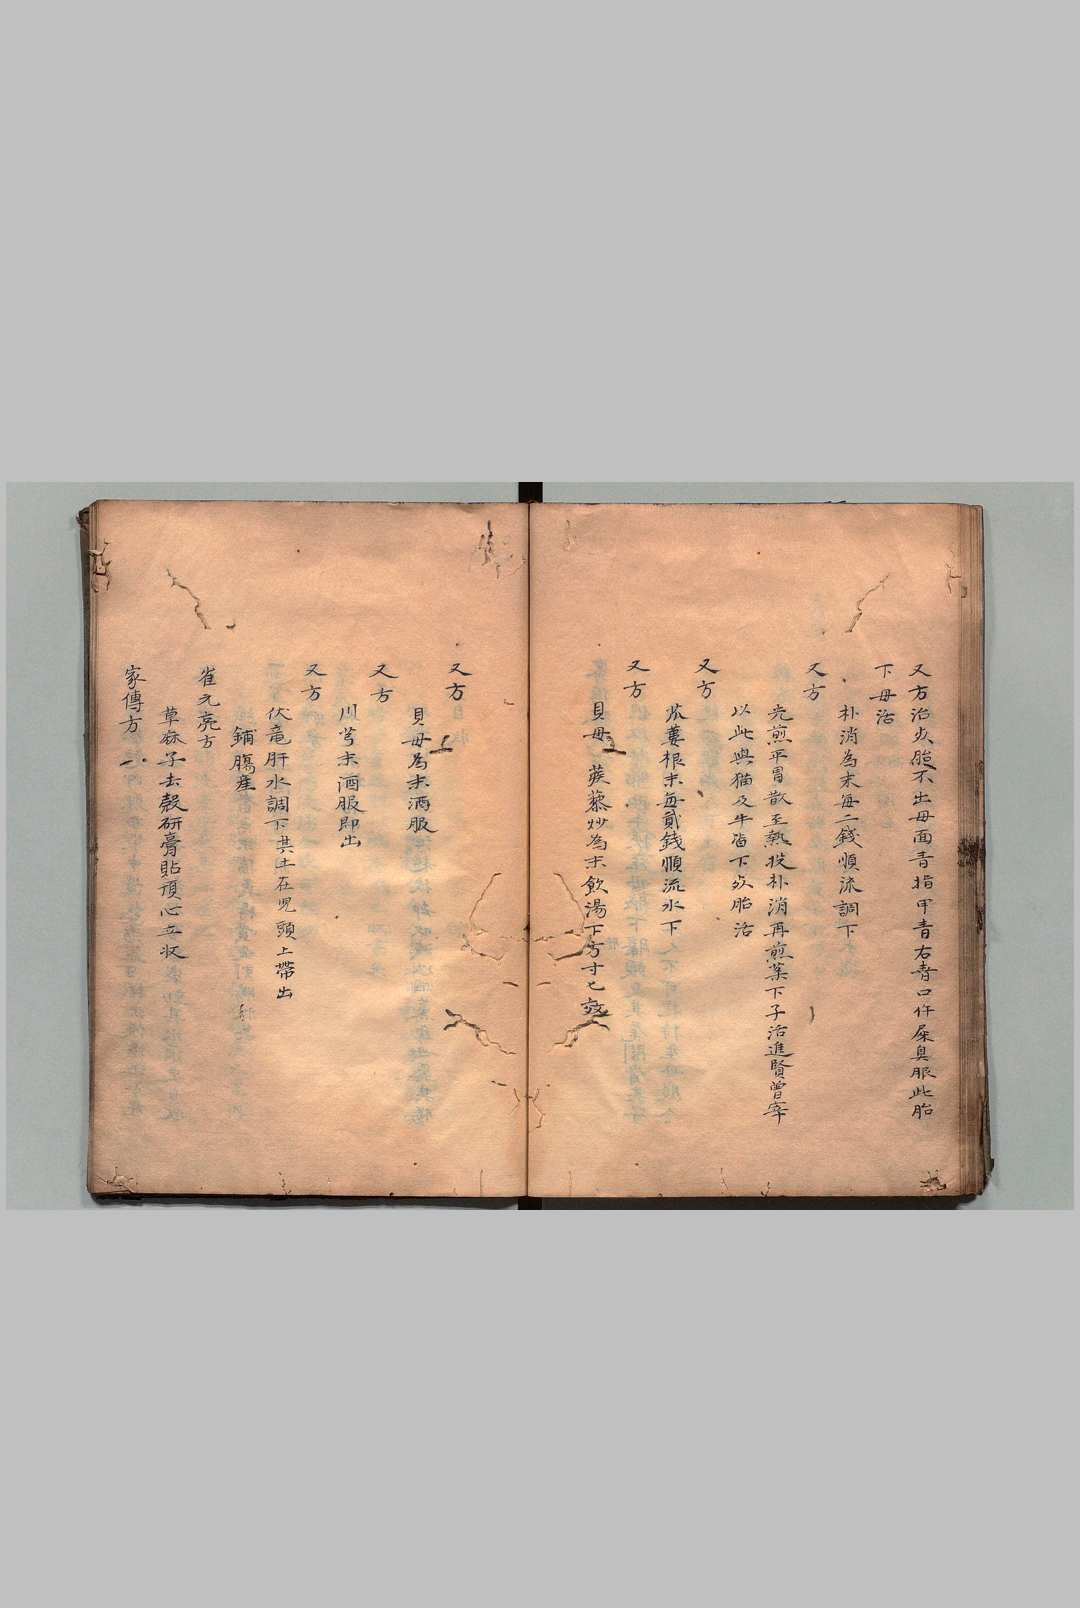 又方治死胎不出母面青指甲青右青口作屎臭服此胎
下母活
朴消為末每二錢順流調下
又方
先煎平胃散至熟投朴消再煎葉下子活進賢曽宰
以此與猫及牛皆下死胎活
又方
瓜蔞根末每貳錢順流水下
又方
貝母 蒺藜炒為末飲湯下方寸匕
又方
貝母為末酒服
又方
川芎末酒服即出
又方
伏竜肝水調下其土在児頭上帶出
鋪膓産
崔元亮方
草麻子去殼研膏貼頂心立収
家傳方